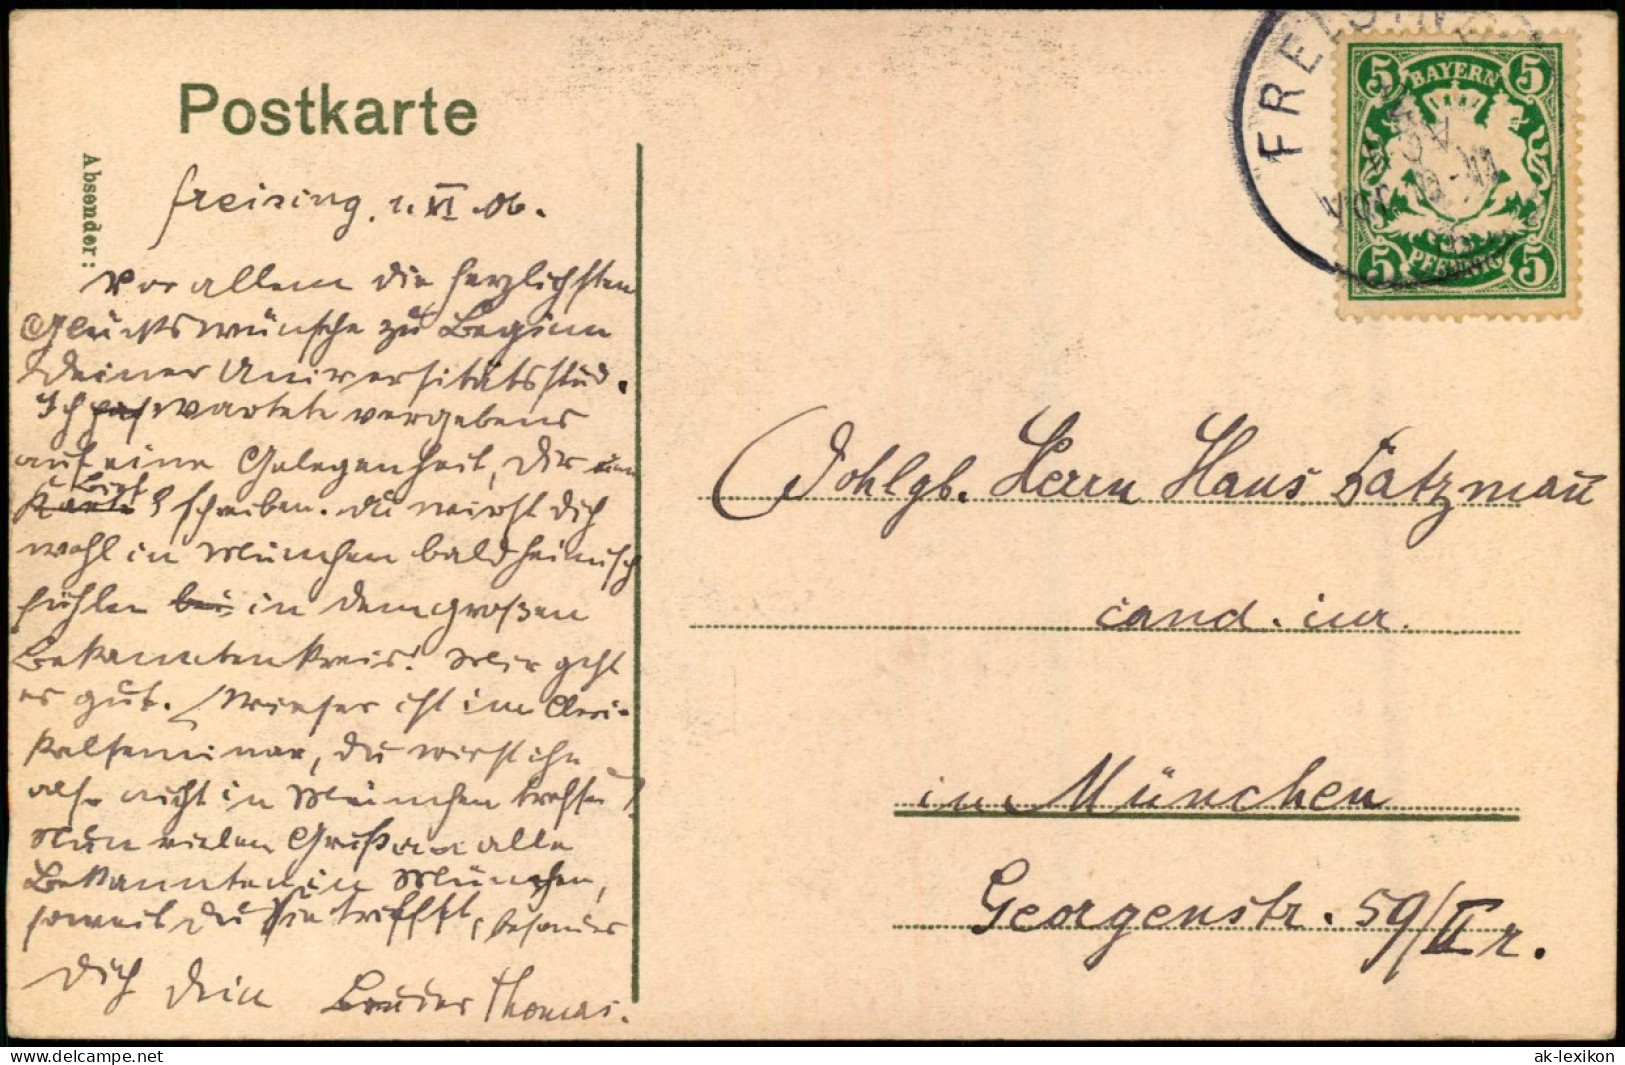 Postkarte
Absender:
Freising, 1. VI. 06.
Vor allem die herzlichsten
Glückswünsche zu Beginn
Deiner Universitätsstud.
Ich wartete vergebens
auf eine Gelegenheit, Dir
schreiben. Du wirst dich
wohl in München bald heimisch
fühlen in dem großen
Bekanntenkreis! Mir geht
es gut. Wieser ist im Cleri-
kalseminar, du wirst ihn
also nicht in München treffen!
Nun vielen Grüße an alle
Bekannten in München,
soweit Du sie triffst, besonders
Dich Dein Bruder Thomas.
FREISING
VOR. 10-11
BAYERN
5 5
5 5
PFENNIG
Wohlgb. Herrn Hans Fatzmañ
cand. iur.
in München
Georgenstr. 59/II r.
www.delcampe.net
ak-lexikon